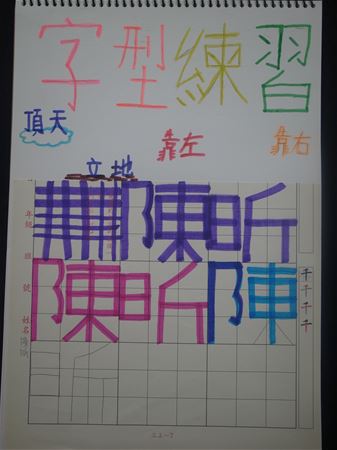 字型練習
頂天
立地
靠左
靠右
陳昕
陳昕陳
千千千千
年級 班 號 姓名